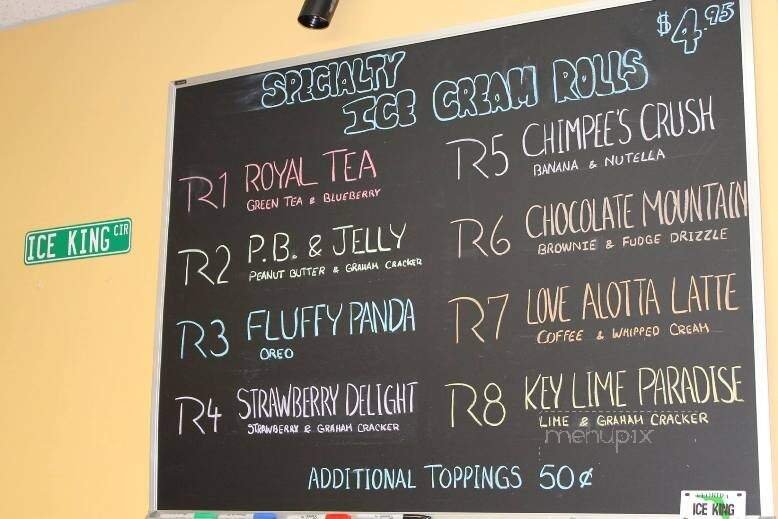 $4.95
SPECIALTY
ICE CREAM ROLLS
R1 ROYAL TEA
GREEN TEA & BLUEBERRY
R2 P.B. & JELLY
PEANUT BUTTER & GRAHAM CRACKER
R3 FLUFFY PANDA
OREO
R4 STRAWBERRY DELIGHT
STRAWBERRY & GRAHAM CRACKER
R5 CHIMPEE'S CRUSH
BANANA & NUTELLA
R6 CHOCOLATE MOUNTAIN
BROWNIE & FUDGE DRIZZLE
R7 LOVE ALOTTA LATTE
COFFEE & WHIPPED CREAM
R8 KEY LIME PARADISE
LIME & GRAHAM CRACKER
menupix
ADDITIONAL TOPPINGS 50¢
ICE KING CIR
ICE KING